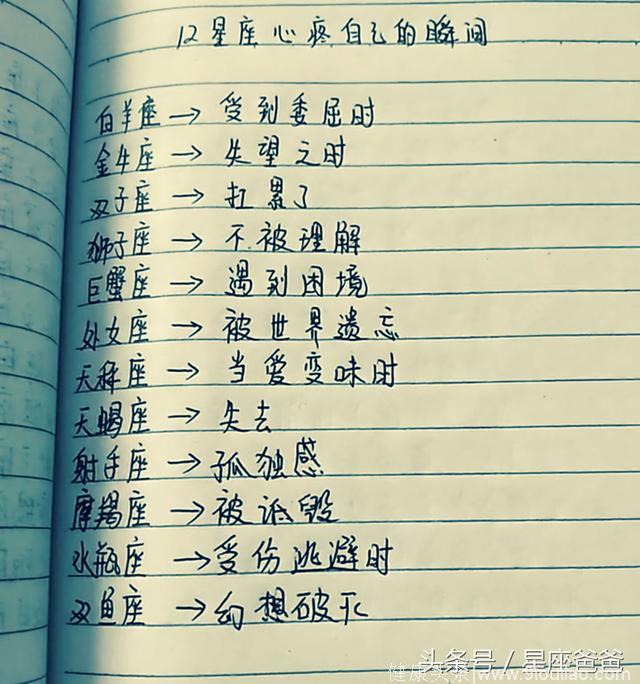 12星座心疼自己的瞬间
白羊座→受到委屈时
金牛座→失望之时
双子座→扛累了
狮子座→不被理解
巨蟹座→遇到困境
处女座→被世界遗忘
天秤座→当爱变味时
天蝎座→失去
射手座→孤独感
摩羯座→被诋毁
水瓶座→受伤逃避时
双鱼座→幻想破灭
头条号/星座爸爸
健康头条 www.9lodliao.com